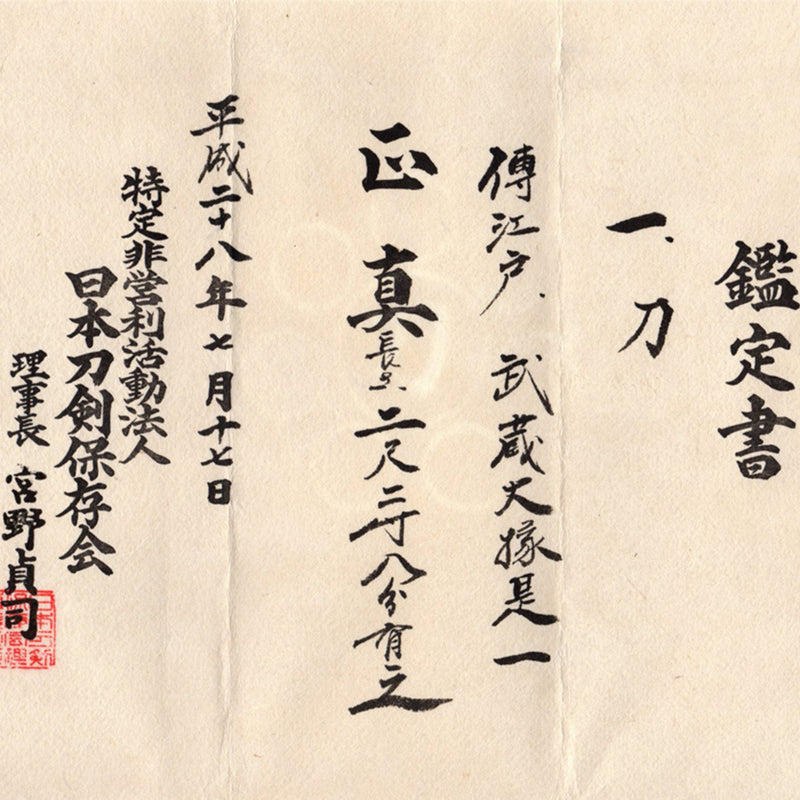 鑑定書
一、刀
傳江戸、武蔵大掾是一
正真長さ二尺三寸八分有之
平成二十八年七月十七日
特定非営利活動法人
日本刀剣保存会
理事長 宮野貞司